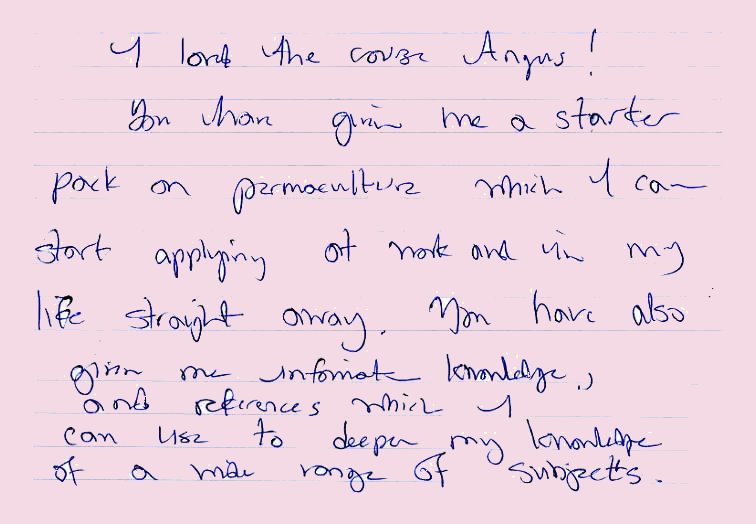 I loved the course Angus!
You have given me a starter
pack on permaculture which I can
start applying at work and in my
life straight away. You have also
given me infomate knowledge,
and references which I
can use to deepen my knowledge
of a wide range of subjects.